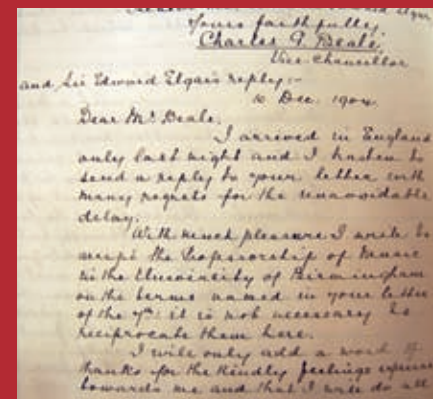 Edward Elgar
Yours faithfully,
Charles G. Beale,
Vice-Chancellor
and Sir Edward Elgar's reply:-
10 Dec. 1904.
Dear Mr. Beale,
I arrived in England
only last night and I hasten to
send a reply to your letter with
many regrets for the unavoidable
delay.
With much pleasure I write to
accept the Professorship of Music
in the University of Birmingham
on the terms named in your letter
of the 7th: it is not necessary to
reciprocate them here.
I will only add a word of
thanks for the kindly feelings
towards me and that I will do all